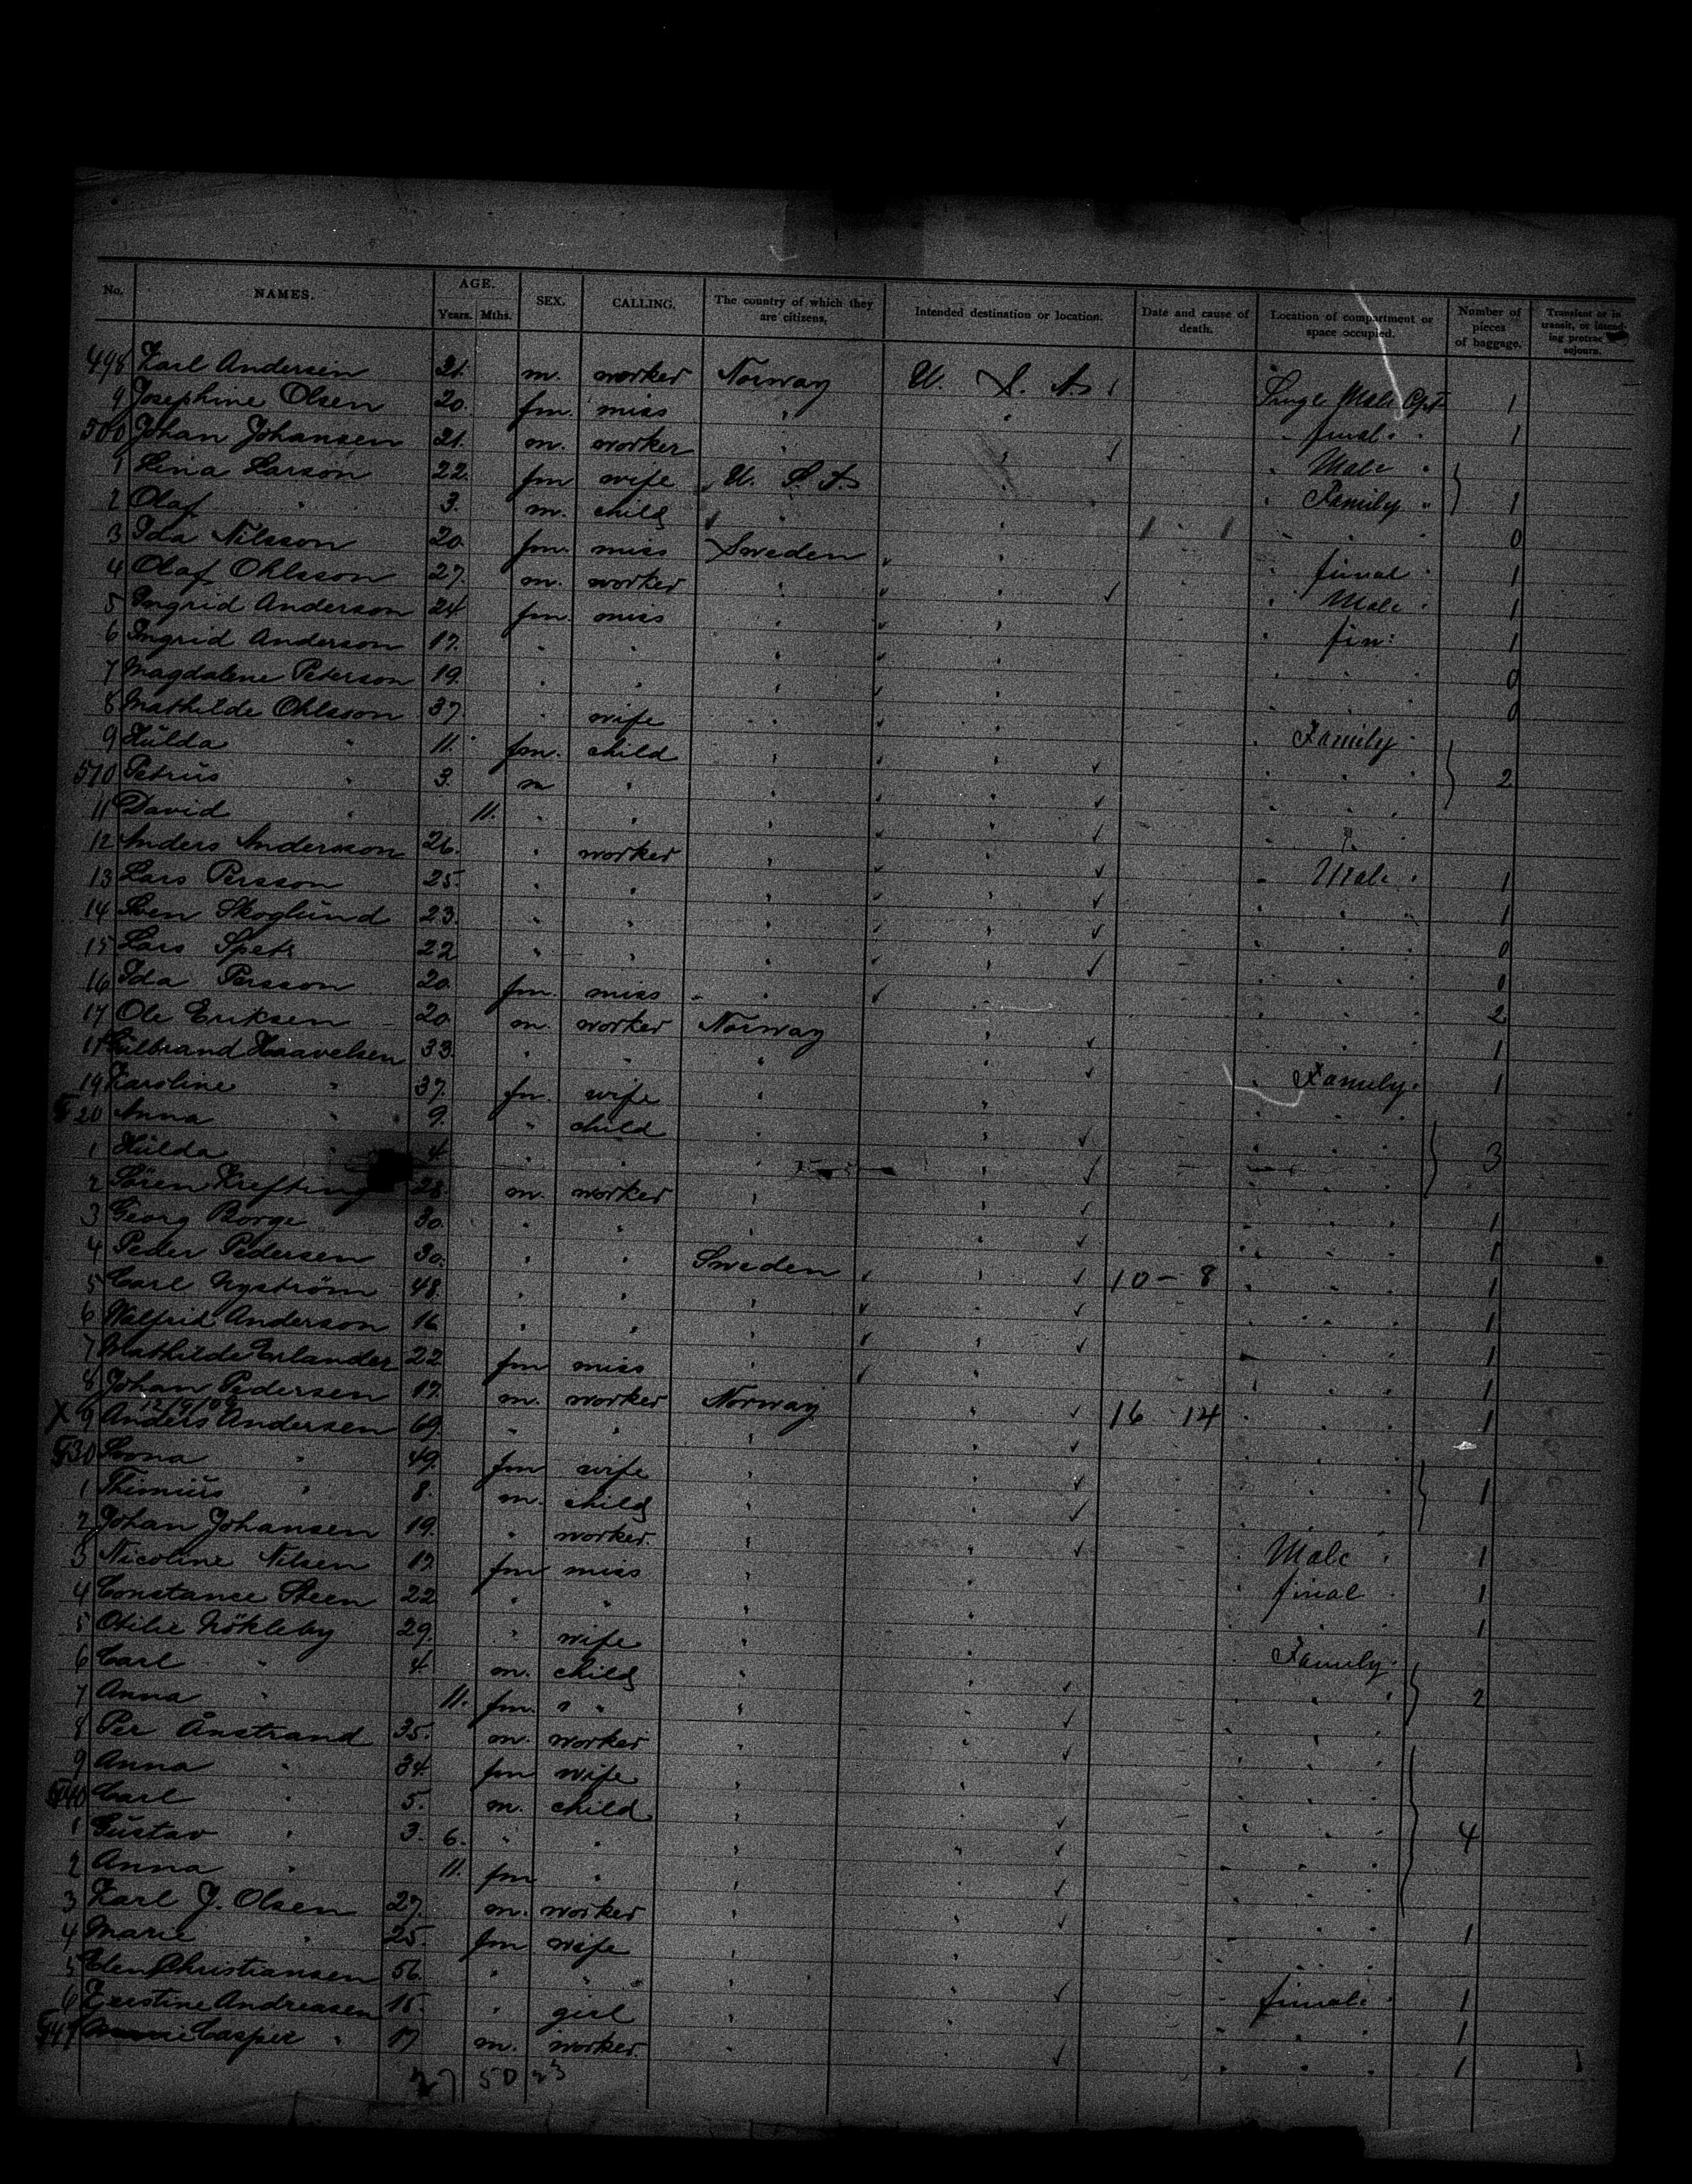 No. NAMES. AGE. Years. Mths. SEX. CALLING. The country of which they are citizens. Intended destination or location. Date and cause of death. Location of compartment or space occupied. Number of pieces of baggage. Transient or in transit, or intending protracted sojourn.
498 Karl Andersen 21. m. worker Norway U. S. A. Single Male Cpt 1
9 Josephine Olsen 20. fm. miss " " 1
500 Johan Johansen 21. m. worker " " Male "
1 Lina Larson 22. fm wife U. S. A. " Family " 1
2 Olaf " 3. m. child " " 0
3 Ida Nilsson 20. fm. miss Sweden " 1
4 Olaf Ohlsson 27. m. worker " " Male " 1
5 Ingrid Anderson 24 fm. miss " " fm: 1
6 Ingrid Anderson 17. " " " " 0
7 Magdalene Peterson 19. " " " " 0
8 Mathilde Ohlsson 37. " wife " " Family "
9 Hulda " 11. fm. child " " 2
510 Petrus " 3. m " " "
11 David " 11. " " " "
12 Anders Andersson 26. " worker " " Male " 1
13 Lars Persson 25. " " " " 1
14 Sven Skoglund 23. " " " " 0
15 Lars 22 " " " "
16 Ida Persson 20. fm. miss " " 2
17 Ole Eriksen 20. m. worker Norway " 1
18 Gulbrand Haavelsen 33. " " " " Family " 1
19 Karoline " 37. fm. wife " "
20 Anna " 9. " child " " 3
1 Hulda " 4 " " " "
2 Sören Krefting 28. m. worker " " 1
3 Georg Borge 30. " " " " 1
4 Peder Pedersen 30. " " Sweden " 10 - 8 1
5 Carl Nyström 48. " " " " 1
6 Walfrid Anderson 16 " " " " 1
7 Mathilde Erlander 22 fm miss " " 1
8 Johan Pedersen 17. m. worker Norway " 16 - 14 1
12/9/09
X 9 Anders Andersen 69. " " " "
530 " 49. fm wife " " 1
1 " 8. m. child " "
2 Johan Johansen 19. " worker. " " Male " 1
3 Nicoline Nilsen 19. fm miss " " 1
4 Constance Steen 22 " " " " 1
5 Otilie Nökleby 29. " wife " " Family "
6 Carl " 4 m. child " " 2
7 Anna " 11. fm. " " " "
8 Per Ånstrand 35. m. worker " "
9 Anna " 34. fm wife " "
540 Carl " 5. m. child " " 4
1 Gustav " 3. 6. " " " "
2 Anna " 11. fm " " "
3 Karl J. Olsen 27. m. worker " " 1
4 Marie " 25. fm wife " "
5 Elen Christiansen 56. " " " " 1
6 Andreasen 15. " girl " " 1
547 Casper " 17 m. worker. " " 1
27 50 23